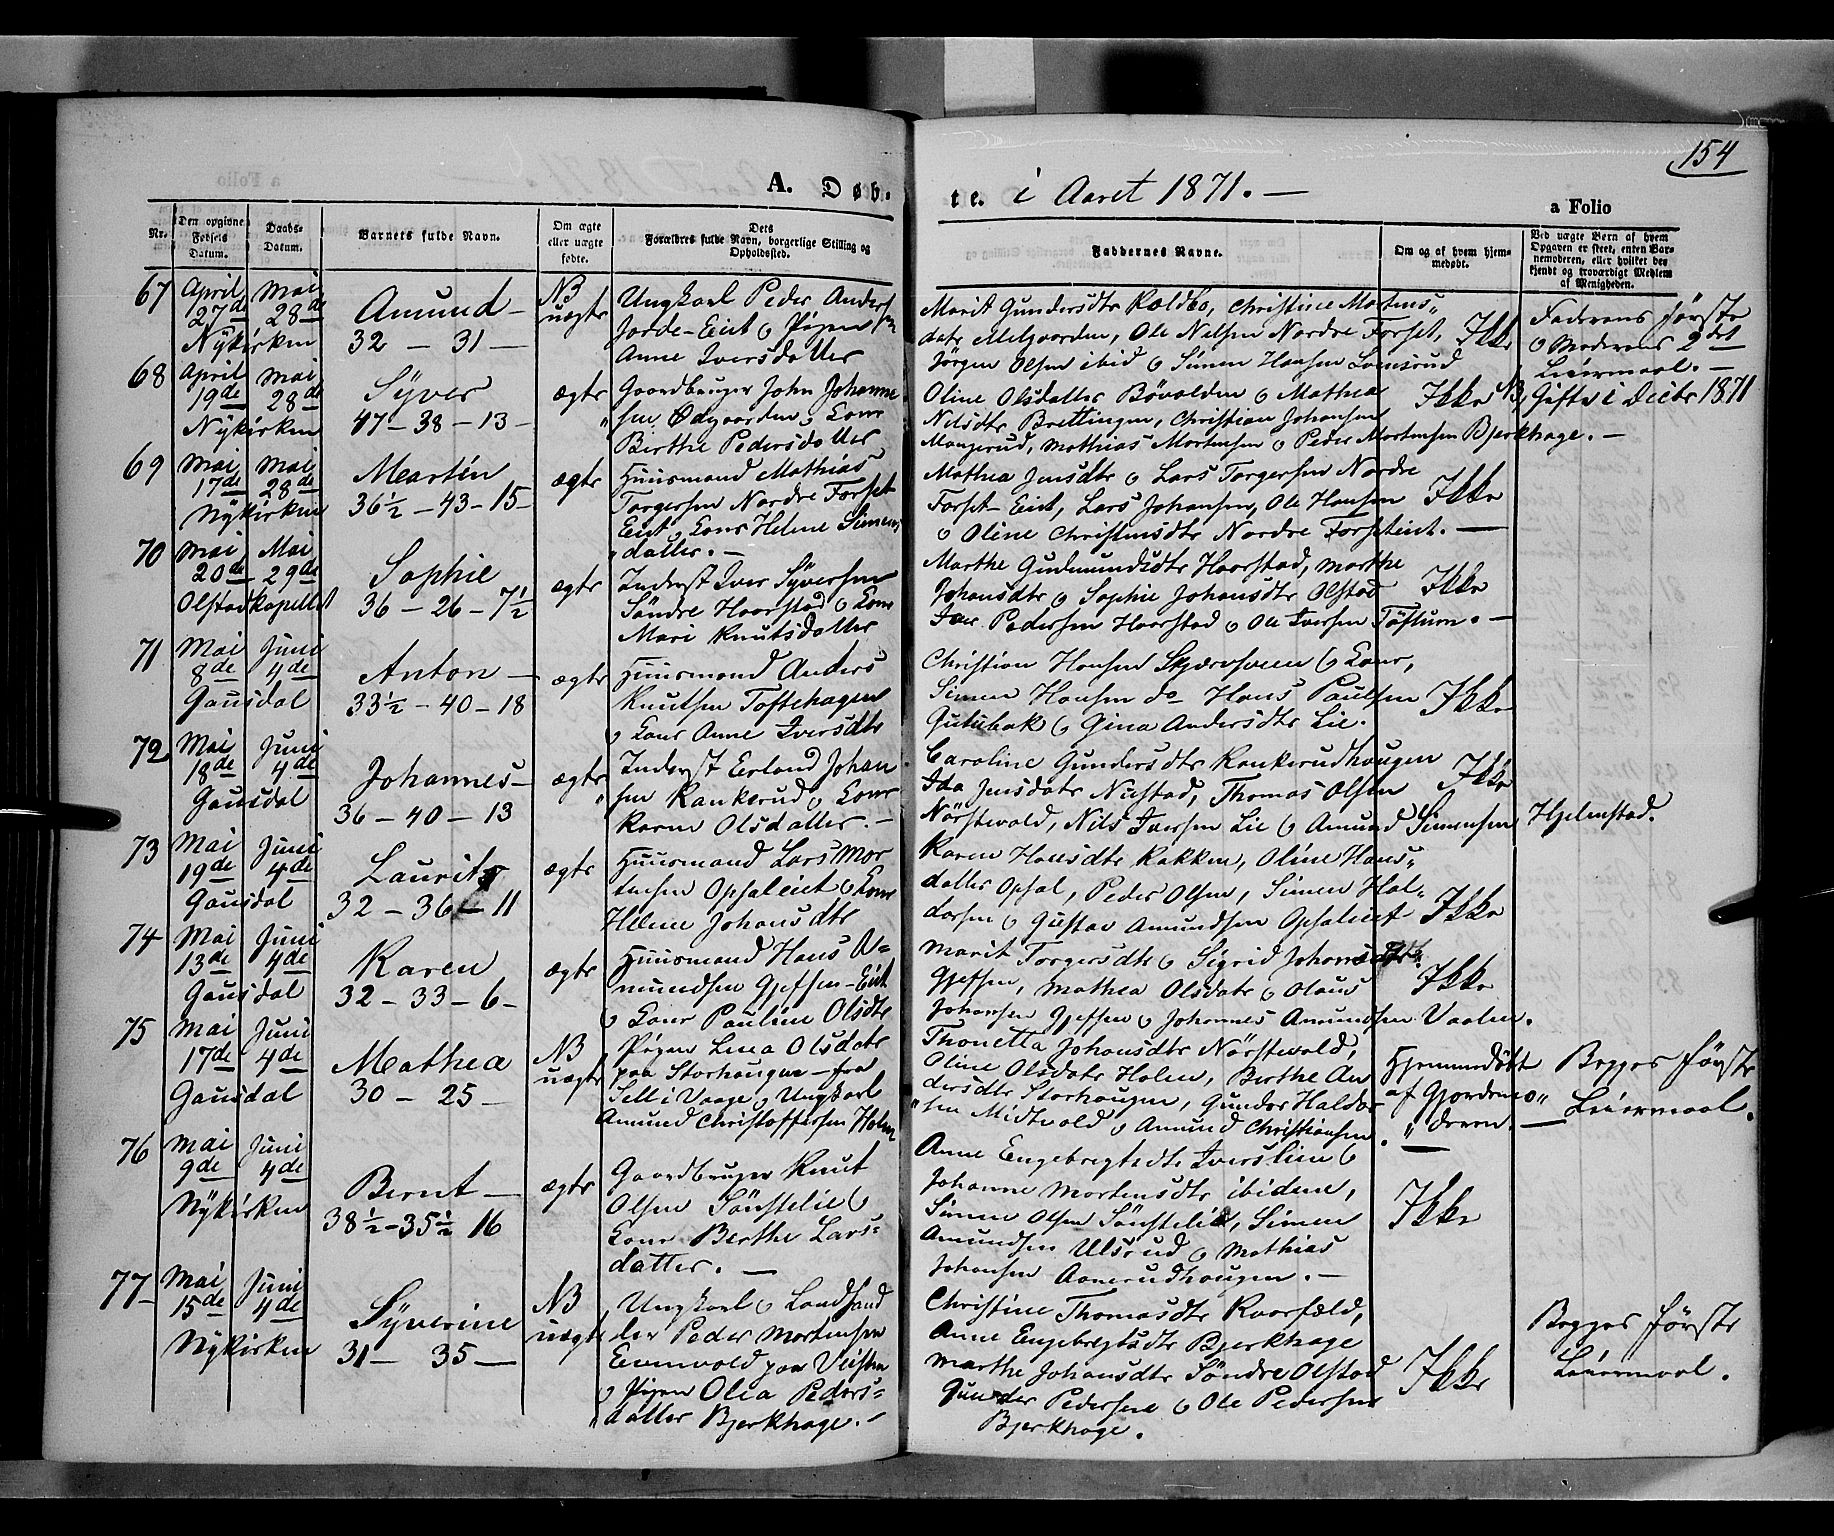 154
A. Døb-
te. i Aaret 1871. —
a Folio
Nr.
Den opgivne Fødsels Datum.
Daabs-Datum.
Barnets fulde Navn.
Om ægte eller uægte fødte.
Dets Forældres fulde Navn, borgerlige Stilling og Opholdssted.
Faddernes Navne.
Om og af hvem hjemmedøbt.
Ved uægte Børn af hvem Opgaven er skeet, enten Barnemoderen, eller hvilket bekjendt og troværdigt Medlem af Menigheden.
67
April 27de
Mai 28de
Nykirken
Amund —
32 — 31 —
NB uægte
Ungkarl Peder Anders
Jorde-Eiet o Pigen
Anne Iversdatter
Marit Gundersdtr Kældbo, Christine Mortens-
datr Melgaarden, Ole Nelsen Nordre Forset,
Jörgen Olsen ibid o Simen Hansen
Ikke
Faderens første
o Moderens 2det
Leiermaal. —
68
April 19de
Mai 28de
Nykirken
Syver
47 — 38 — 13 —
ægte
Gaardbruger John Johanne
"sen Ödegaarden o Kone
Birthe Pedersdatter
Oline Olsdatter Bövolden o Mathea
Nilsdtr Brettingen, Christian Johansen
Mangerud, Mathias Mortensen o Peder Mortensen Bjerkhage. —
Ikke
NB, Gifte i Decbr 1871
69
Mai 17de
Mai 28de
Nykirken
Martin
36½ — 43 — 15 —
ægte
Huusmand Mathias
Torgersen Nordre Forset
Eiet o Kone Helene Simens
"datter. —
Mathea Jensdtr o Lars Torgersen Nordre
Forset-Eiet, Lars Johansen, Ole Hansen
o Oline Christensdtr Nordre Forseteiet. —
Ikke
70
Mai 20de
Mai 29de
Olstadkapellet
Sophie
36 — 26 — 7½
ægte
Inderst Iver Syversen
Söndre Haarstad o Kone
Mari Knutsdatter
Marthe Gudmundsdtr Haarstad, Marthe
Johansdtr o Sophie Johansdtr Olstad
Iver Pedersen Haarstad o Ole Iversen Töftum. —
Ikke
71
Mai 8de
Juni 4de
Gausdal
Anton —
33½ — 40 — 18
ægte
Huusmand Anders
Knutsen Toftehagen
o Kone Anne Iversdtr
Christian Hansen Skjærvsveen o Kone,
Simen Hansen do Hans Paulsen
Gutubak o Gina Andersdtr Lie.
Ikke
72
Mai 18de
Juni 4de
Gausdal
Johannes —
36 — 40 — 13
ægte
Inderst Erland Johan
"sen Kankerud o Kone
Karen Olsdatter. —
Caroline Gundersdtr Kankerudhaugen
Ida Jensdatr Nustad, Thomas Olsen
Nörstevold, Nils Iversen Lie o Amund Simensen Hjelmstad.
Ikke
73
Mai 19de
Juni 4de
Gausdal
Lauritz
32 — 36 — 11
ægte
Huusmand Lars Mor
tensen Opsaleiet o Kone
Helene Johansdtr
Karen Hansdtr Kakken, Oline Hans-
datter Opsal, Peder Olsen, Simen Hal-
dorsen o Gustav Amundsen Opsaleiet
Ikke
74
Mai 13de
Juni 4de
Gausdal
Karen
32 — 33 — 6 —
ægte
Huusmand Hans A-
mundsen Gjefsen-Eiet
o Kone Pauline Olsdtr
Marit Torgersdtr o Sigrid Johansdtr
Gjefsen, Mathea Olsdatr o Olaus
Johansen Gjefsen o Johannes Amundsen Vaalen.
Ikke
75
Mai 17de
Juni 4de
Gausdal
Mathea
30 — 25 —
NB uægte
Pigen Lina Olsdatr
paa Storhaugen — fra
Sell i Vaage o Ungkarl
Amund Christoffersen Holen
Thonetta Johansdtr Nörstevold,
Oline Olsdatr Holen, Berthe An
dersdtr Storhaugen, Gunder Haldor
"sen Midtvold o Amund Christiansen.
Hjemmedöbt
af Gjordemo"
"deren. —
Begges første
Leiermaal.
76
Mai 9de
Juni 4de
Nykirken
Bernt —
38½ — 35½ 16
ægte
Gaardbruger Knut
Olsen Sönstelie o
Kone Berthe Lars-
datter. —
Anne Engebregtsdtr Iverslien o
Johanne Mortensdtr ibidem,
Simen Olsen Sönstelie, Simen
Amundsen Ulsrud o Mathias
Johansen Aanerudhaugen. —
Ikke
77
Mai 15de
Juni 4de
Nykirken
Syverine
31 — 35 —
NB uægte
Ungkarl o Landhand
ler Peder Mortensen
Evenvold paa Veisten
o Pigen Olea Peders-
"datter Bjerkhage. —
Christine Thomasdtr Kvarfæld,
Anne Engebregtsdtr Bjerkhage
Marthe Johansdtr Söndre Olstad
Gunder Pedersen o Ole Pedersen
Bjerkhage.
Ikke
Begges første
Leiermaal.